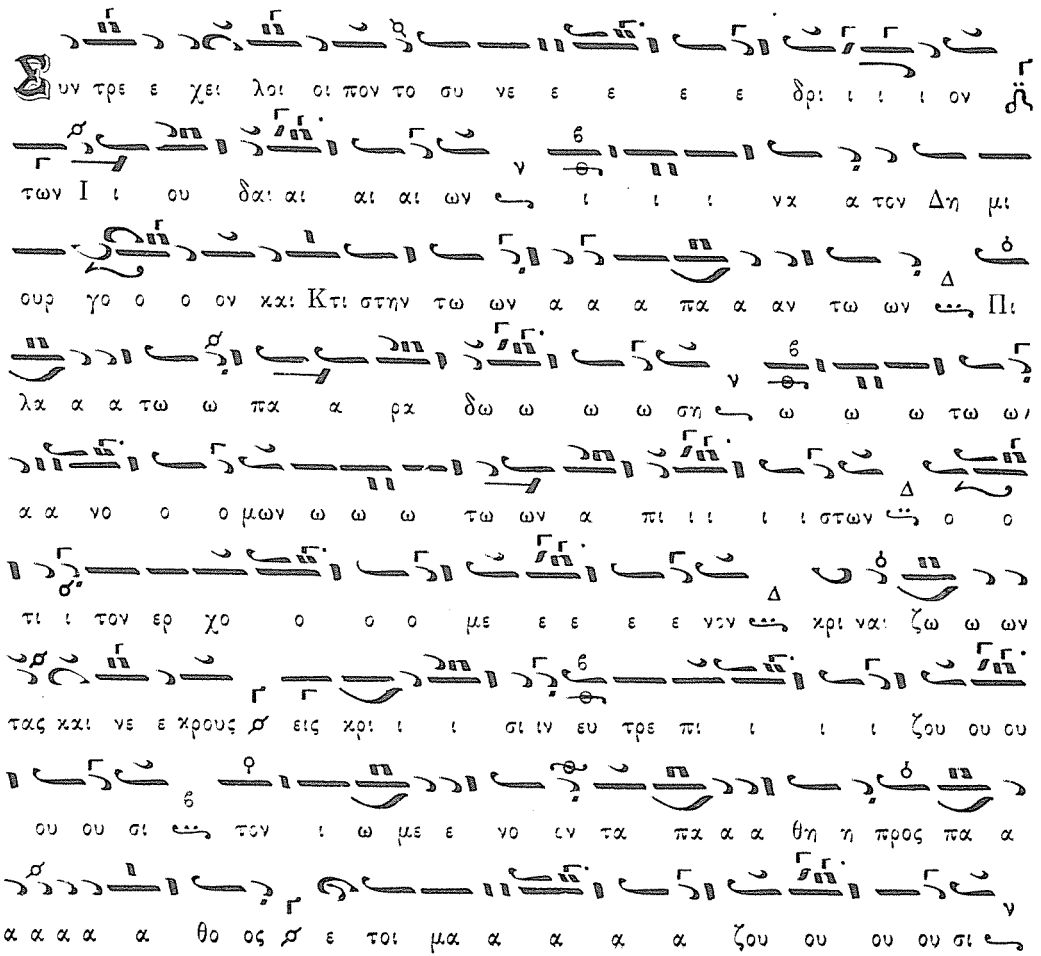 Συν τρε ε χει λοι οι πον το συ νε ε ε ε ε δρι ι ι ι ον
των Ι ι ου δαι αι αι αι ων ι ι ι να α τον Δη μι
ουρ γο ο ο ον και Κτι στην τω ων α α α πα α αν τω ων Πι
λα α α τω ω πα α ρα δω ω ω ω ση ω ω ω τω ω
α α νο ο ο μων ω ω ω τω ων α πι ι ι ι ι στων ο ο
τι ι τον ερ χο ο ο ο με ε ε ε ε νον κρι ναι ζω ω ων
τας και νε ε κρους εις κρι ι ι σι ιν ευ τρε πι ι ι ι ζου ου ου
ου ου σι τον ι ω με ε νο ιν τα πα α α θη η προς πα α
α α α α α θο ος ε τοι μα α α α α ζου ου ου ου σι